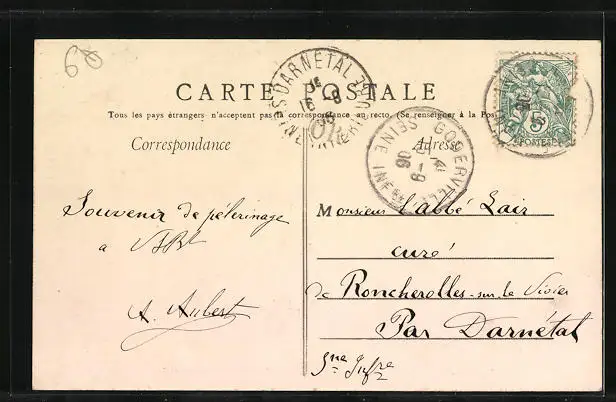 60
CARTE POSTALE
Tous les pays étrangers n'acceptent pas la correspondance au recto. (Se renseigner à la Pos
Correspondance
Adresse
DARNETAL
16 -9
GODERVILLE
SEINE INF
5
POSTES
Souvenir de pélerinage
a
A. Aubert
Monsieur l'abbé Lair
curé
de Roncherolles-sur-le Vivier
Par Darnétal
Sne Infre